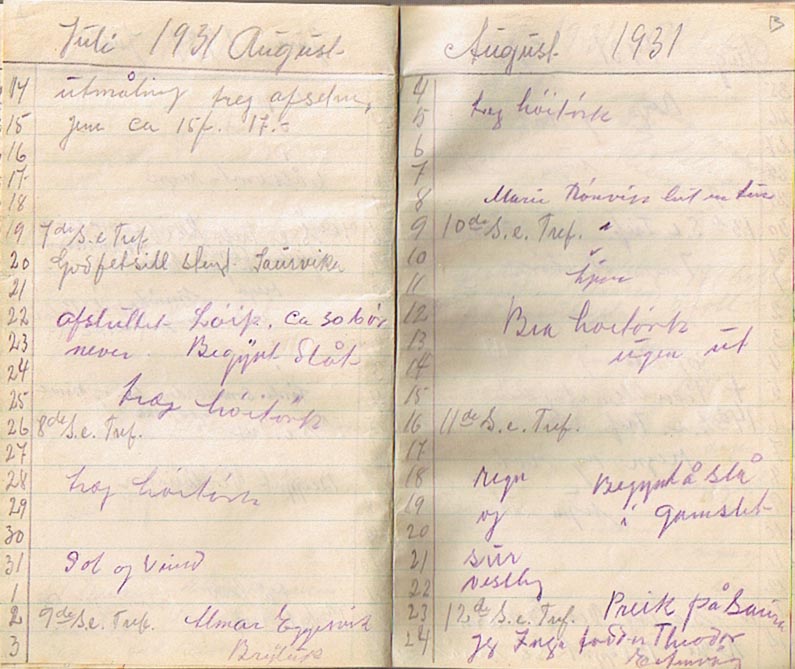 Juli 1931 August
14 utmåling treg afsetn,
15 jem ca 15 f. 17.-
16
17
18
19 7de S. e Tref.
20 Godfetsill
21
22 afsluttet Løip. ca 30 bør
23 never. Begynt Slåt
24
25 træg høitørk
26 8de S. e. Tref.
27
28 træg høitørk
29
30
31 Sol og Vind
1
2 9de S. e. Tref. Almar Eggesvik
3 Brylup
August 1931
4
5 træg høitørk
6
7
8 Marie
9 10de S. e. Tref.
10
11
12 Bra høitørk
13 ugen ut
14
15
16 11de S. e. Tref.
17
18 regn Begynt å slå
19 og i gamslet
20
21 sur
22 vestlig
23 12de S. e. Tref. Preik på
24 Jeg Inga Theodor